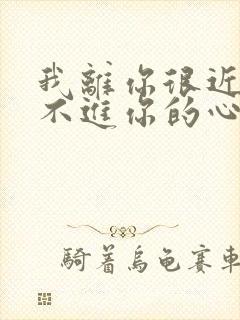 我離你很近
不進你的心
騎着烏龜賽車